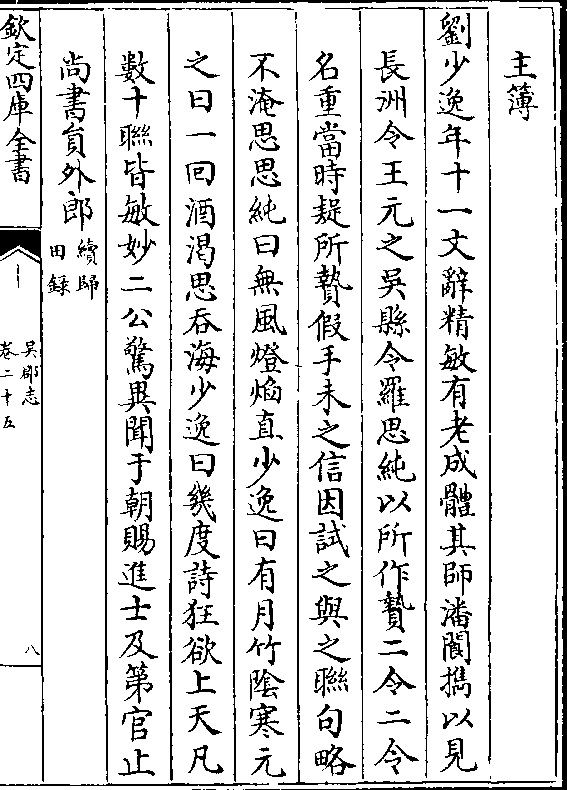 主簿
劉少逸年十一文辭精敏有老成體其師潘閬攜以見
長洲令王元之吳縣令羅思純以所作贄二令二令
名重當時疑所贄假手未之信因試之與之聯句略
不淹思思純曰無風燈焰直少逸曰有月竹陰寒元
之曰一回酒渴思吞海少逸曰幾度詩狂欲上天凡
數十聯皆敏妙二公驚異聞于朝賜進士及第官止
尚書員外郎續歸
田錄
欽定四庫全書
吳郡志
卷二十五
八